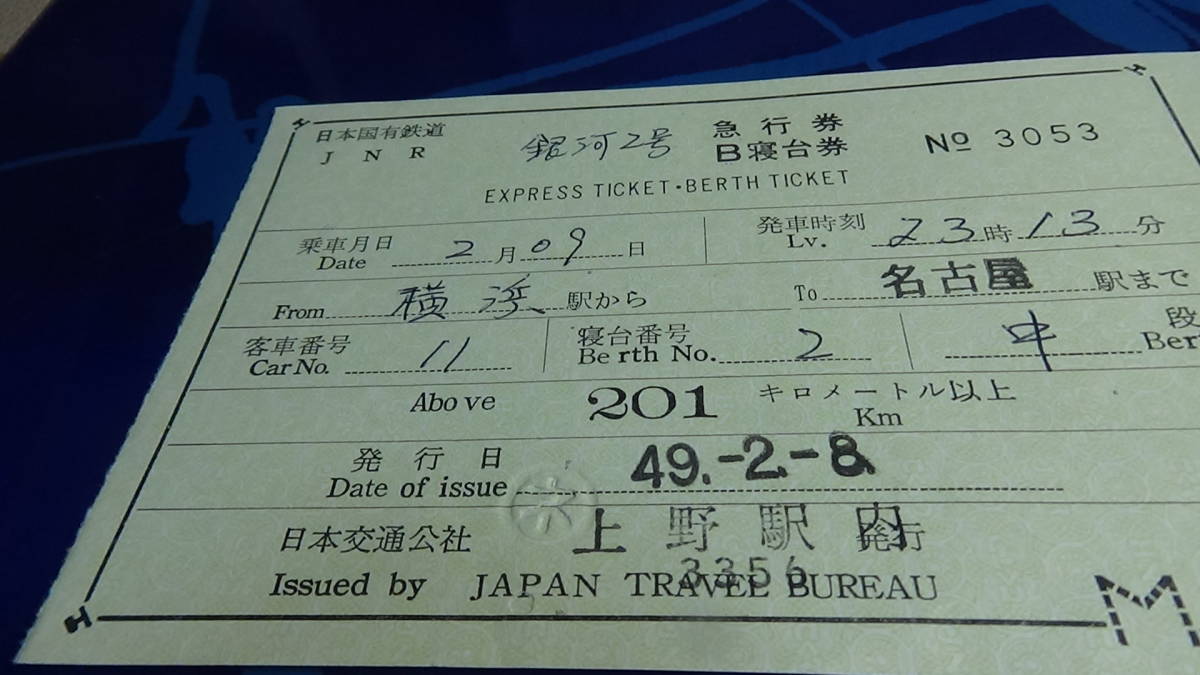 日本国有鉄道 銀河2号 急行券 No 3053
J N R B寝台券
EXPRESS TICKET・BERTH TICKET
乗車月日 2月09日 発車時刻 23時13分
Date Lv.
From 横浜 駅から To 名古屋 駅まで
客車番号 11 寝台番号 2 中 段
Car No. Berth No. Ber
Above 201 キロメートル以上
Km
発行日 49.-2.-8
Date of issue
日本交通公社 上野駅内 発行
3356
Issued by JAPAN TRAVEL BUREAU
M